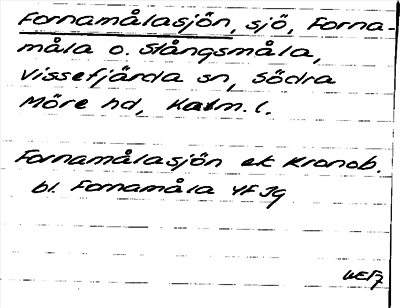 Fornamålasjön, sjö, Forna-
måla o. Slångsmåla,
Vissefjärda sn, Södra
Möre hd, Kalm. l.
Fornamålasjön ek Kronob.
bl. Fornamåla 4F3g